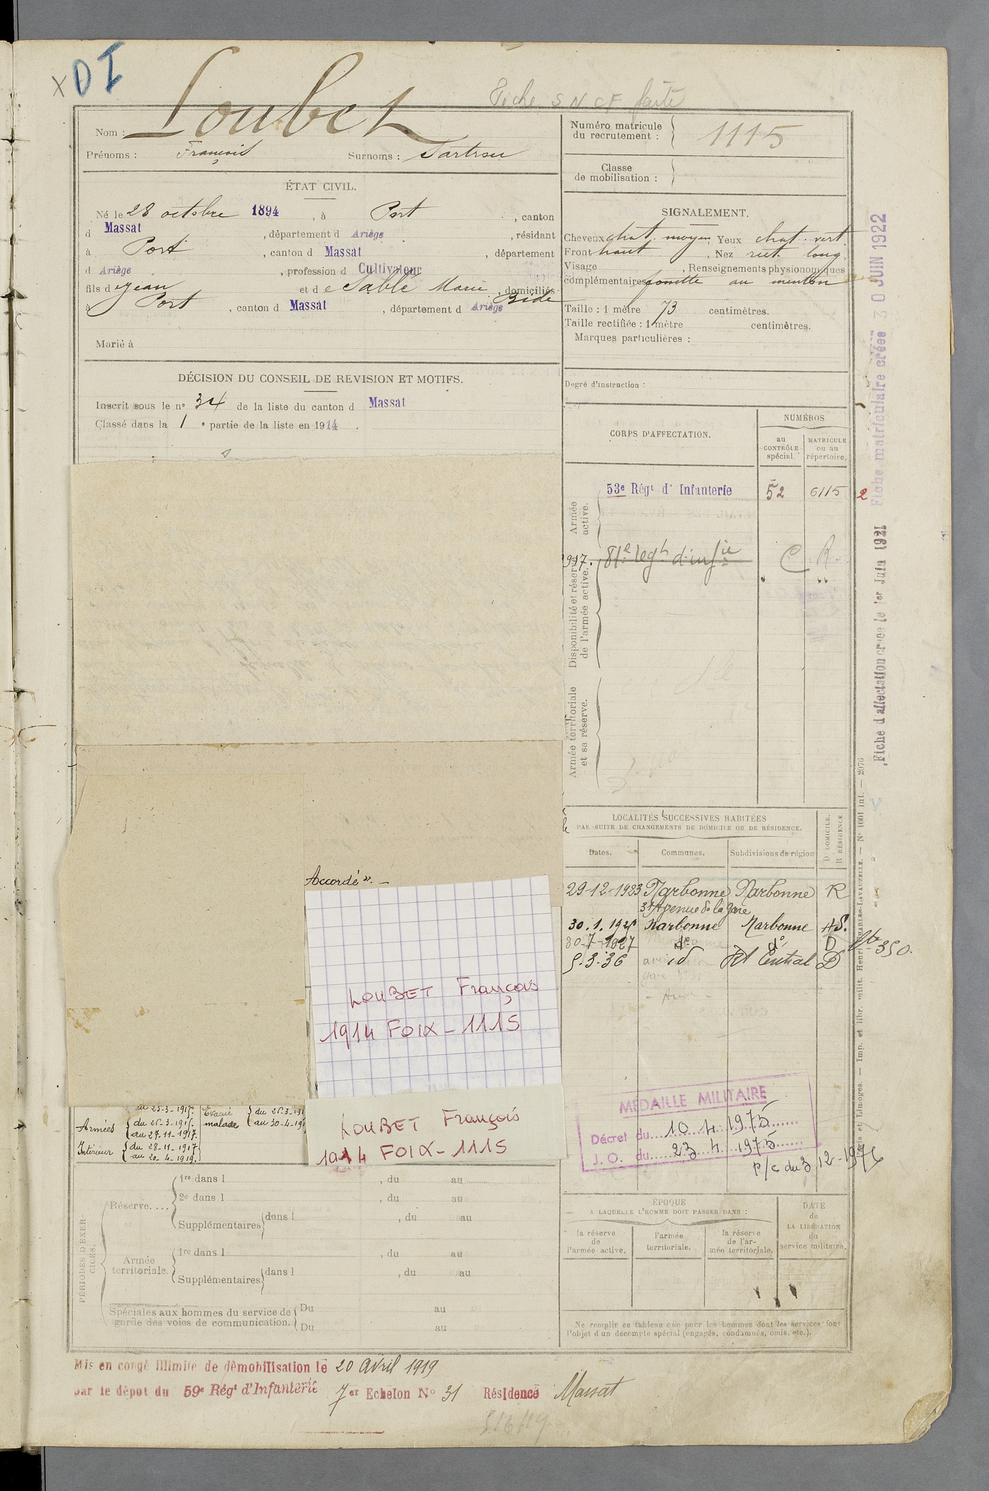 X DI
Fiche SNCF faite
Nom : Loubet
Prénoms : François Surnoms :
ÉTAT CIVIL.
Né le 28 octobre 1894, à Port, canton
d Massat, département d Ariège, résidant
à Port, canton d Massat, département
d Ariège, profession d Cultivateur
fils d e Jean et d e Sablé Marie, domiciliés
à Port, canton d Massat, département d Ariège
Marié à
DÉCISION DU CONSEIL DE RÉVISION ET MOTIFS.
Inscrit sous le n° 34 de la liste du canton d Massat
Classé dans la 1 e partie de la liste en 1914.
Accordé
LOUBET François
1914 FOIX - 1115
LOUBET François
1914 FOIX - 1115
au 25-3-1917
Armées
Intérieur
du 28-11-1917
au 20-4-1919
Evacué
malade
PÉRIODES D'EXERCICES.
Réserve....
1re dans l , du au
2e dans l , du au
Supplémentaires dans l , du au
Armée
territoriale.
1re dans l , du au
Supplémentaires dans l , du au
Spéciales aux hommes du service de
garde des voies de communication.
Du au
Du au
Mis en congé illimité de démobilisation le 20 avril 1919
par le dépot du 59e Régt d'Infanterie 7 er Echelon N° 31 Résidence Massat
Numéro matricule
du recrutement : 1115
Classe
de mobilisation :
SIGNALEMENT.
Cheveux chat. moyen Yeux chat. vert
Front haut, Nez rect. long
Visage , Renseignements physionomiques
complémentaires fossette au menton
Taille : 1 mètre 73 centimètres.
Taille rectifiée : 1 mètre centimètres.
Marques particulières :
Degré d'instruction :
CORPS D'AFFECTATION.
NUMÉROS
au
CONTRÔLE
spécial.
MATRICULE
ou au
répertoire.
Armée
active.
53e Régt d' Infanterie 52 6115
Disponibilité et réserve
de l'armée active.
81e regt d'infie
Armée territoriale
et sa réserve.
LOCALITÉS SUCCESSIVES HABITÉES
PAR SUITE DE CHANGEMENTS DE DOMICILE OU DE RÉSIDENCE.
Dates. Communes. Subdivisions de région D. DOMICILE. R. RÉSIDENCE
29-12-1923 Narbonne Narbonne R
Avenue de la Gare
Narbonne Narbonne
30-7-1927 do do D
5.3.36 id D
MÉDAILLE MILITAIRE
Décret du 10.4.1975
J. O. du 23.4.1975
p/c du 3 12-1976
ÉPOQUE
A LAQUELLE L'HOMME DOIT PASSER DANS :
la réserve
de
l'armée active.
l'armée
territoriale.
la réserve
de l'armée territoriale.
DATE
de
LA LIBÉRATION
du
service militaire.
Ne remplir ce tableau que pour les hommes dont les services font
l'objet d'un décompte spécial (engagés, condamnés, omis, etc.).
Fiche matriculaire créée 30 JUIN 1922
Fiche d'affectation créée le 1er Juin 1921